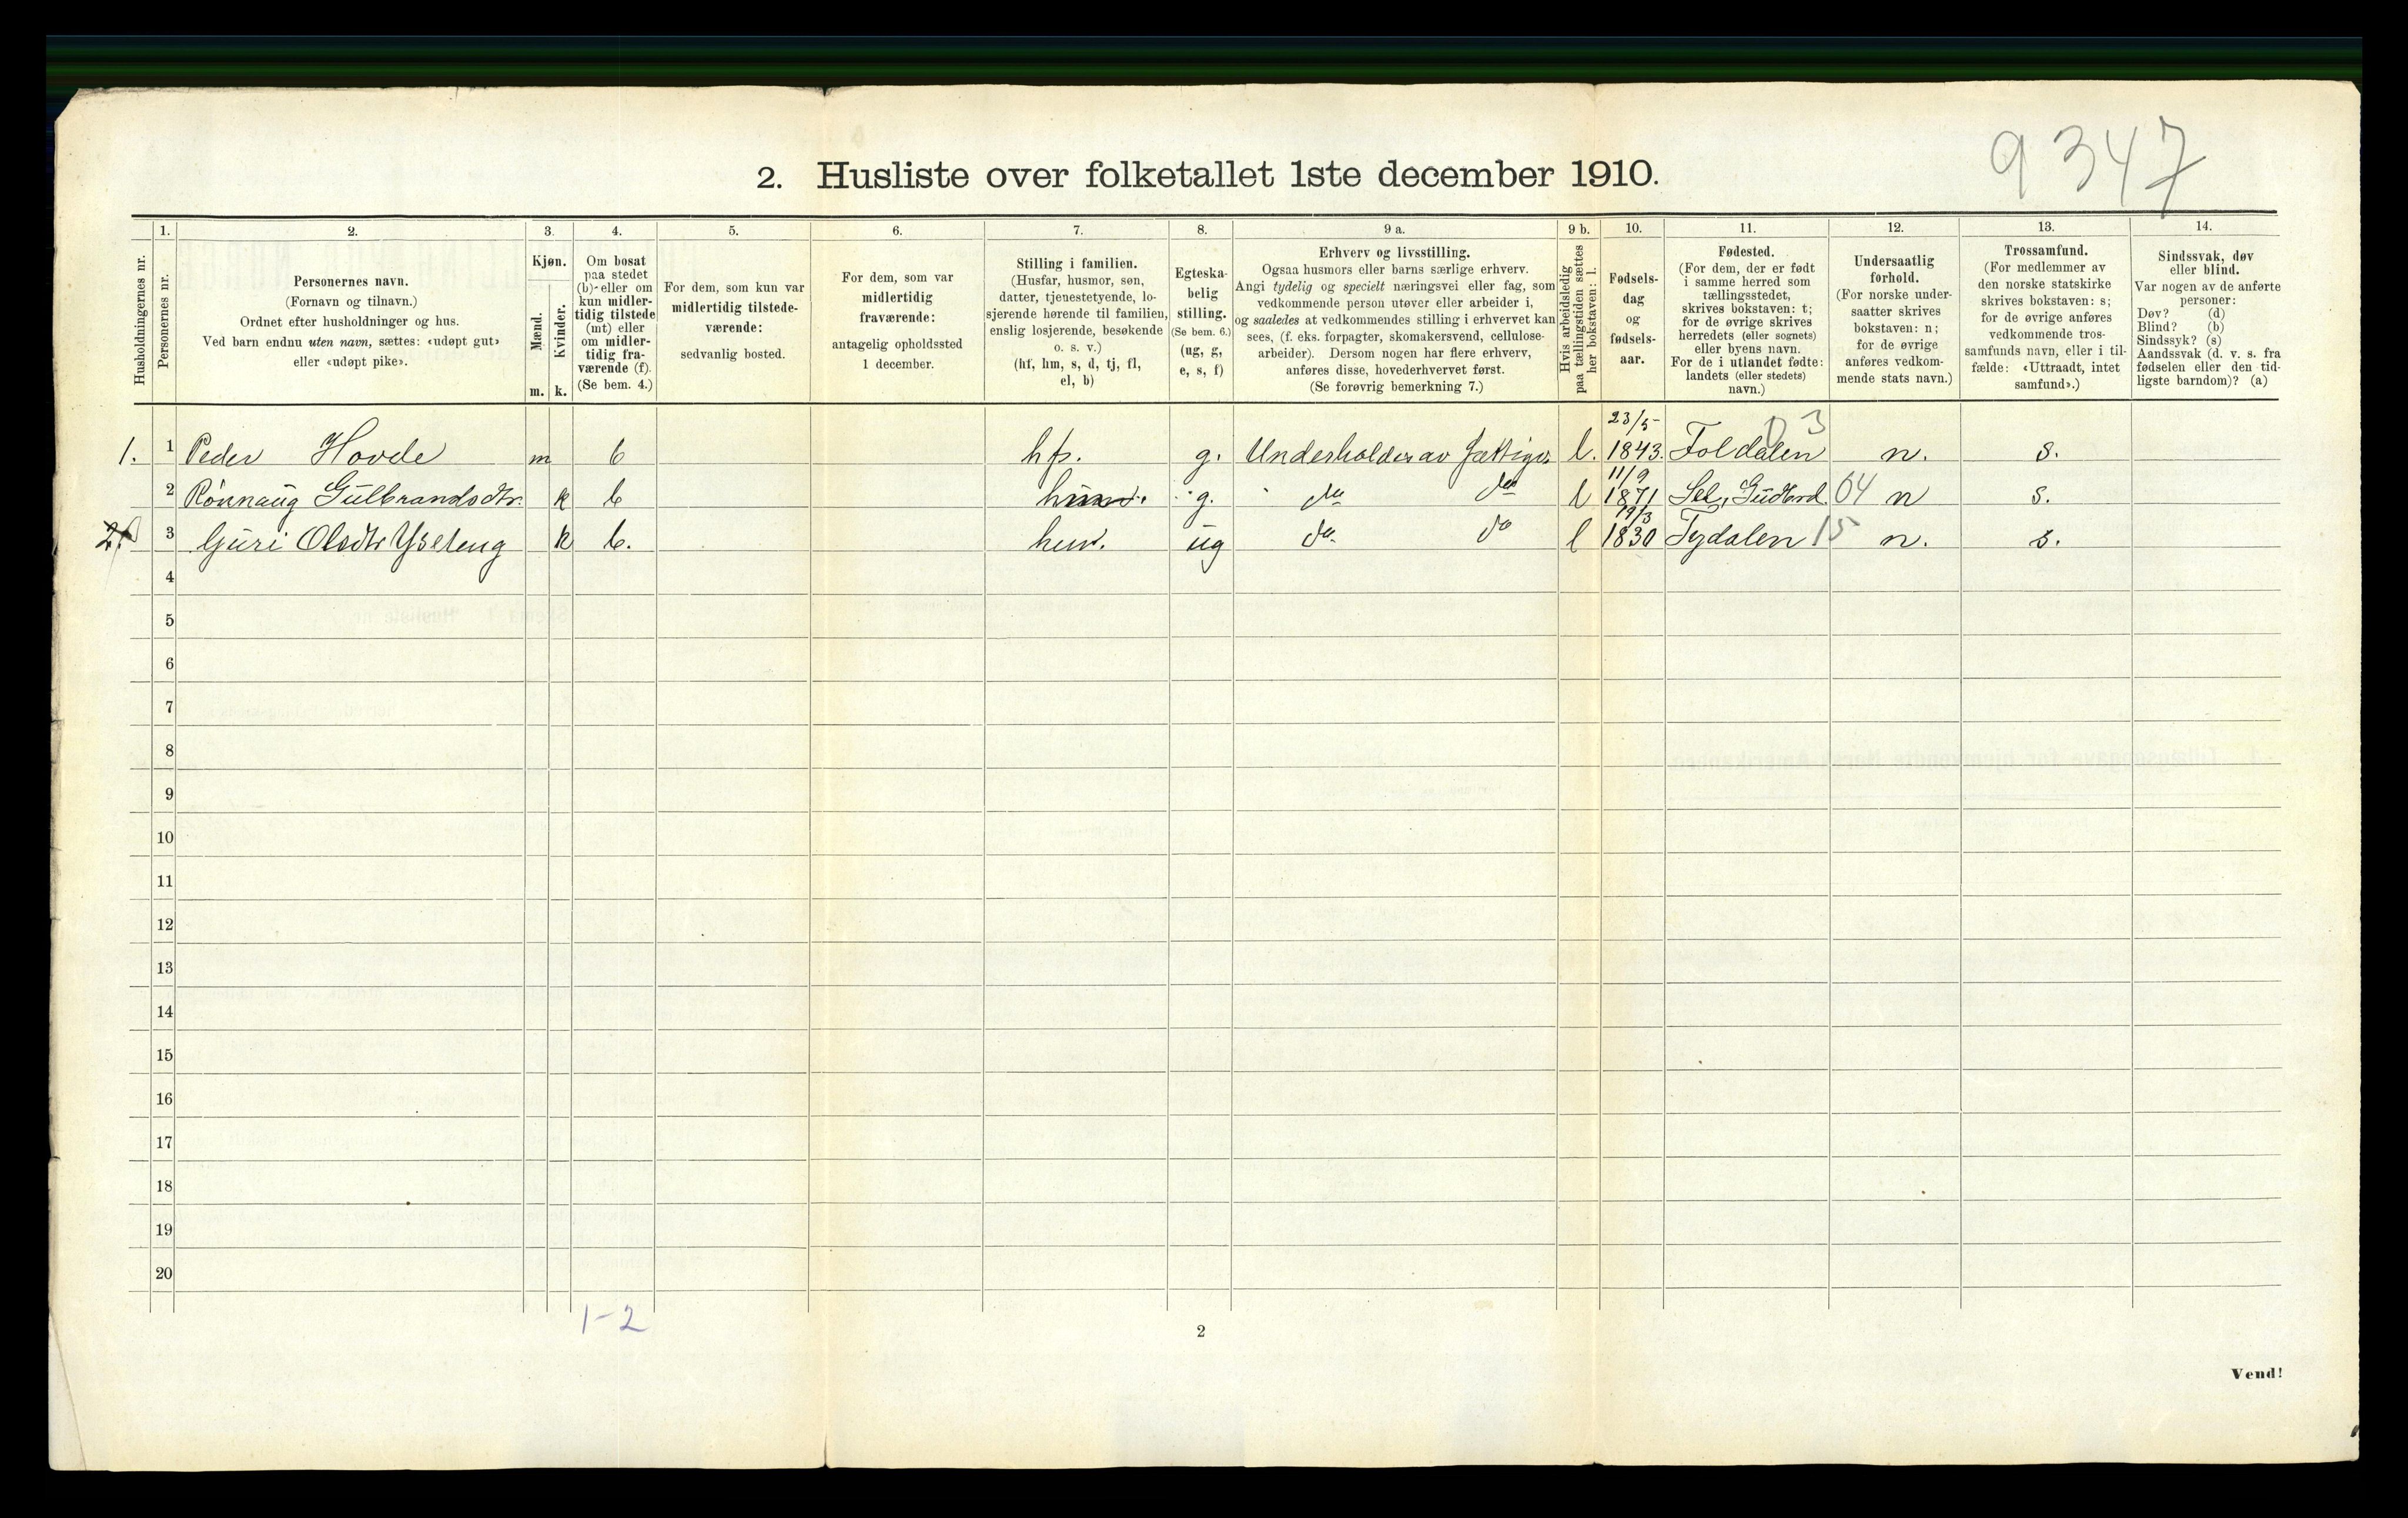 9347
2. Husliste over folketallet 1ste december 1910.
Husholdningernes nr.
1.
Personernes nr.
2.
Personernes navn.
(Fornavn og tilnavn.)
Ordnet efter husholdninger og hus.
Ved barn endnu uten navn, sættes: «udøpt gut»
eller «udøpt pike».
3.
Kjøn.
Mænd.
Kvinder.
m. k.
4.
Om bosat
paa stedet
(b) eller om
kun midler-
tidig tilstede
(mt) eller
om midler-
tidig fra-
værende (f).
(Se bem. 4.)
5.
For dem, som kun var
midlertidig tilstede-
værende:
sedvanlig bosted.
6.
For dem, som var
midlertidig
fraværende:
antagelig opholdssted
1 december.
7.
Stilling i familien.
(Husfar, husmor, søn,
datter, tjenestetyende, lo-
sjerende hørende til familien,
enslig losjerende, besøkende
o. s. v.)
(hf, hm, s, d, tj, fl,
el, b)
8.
Egteska-
belig
stilling.
(Se bem. 6.)
(ug, g,
e, s, f)
9 a.
Erhverv og livsstilling.
Ogsaa husmors eller barns særlige erhverv.
Angi tydelig og specielt næringsvei eller fag, som
vedkommende person utøver eller arbeider i,
og saaledes at vedkommendes stilling i erhvervet kan
sees, (f. eks. forpagter, skomakersvend, cellulose-
arbeider). Dersom nogen har flere erhverv,
anføres disse, hovederhvervet først.
(Se forøvrig bemerkning 7.)
9 b.
Hvis arbeidsledig
paa tællingstiden sættes
her bokstaven: l.
10.
Fødsels-
dag
og
fødsels-
aar.
11.
Fødested.
(For dem, der er født
i samme herred som
tællingsstedet,
skrives bokstaven: t;
for de øvrige skrives
herredets (eller sognets)
eller byens navn.
For de i utlandet fødte:
landets (eller stedets)
navn.)
12.
Undersaatlig
forhold.
(For norske under-
saatter skrives
bokstaven: n;
for de øvrige
anføres vedkom-
mende stats navn.)
13.
Trossamfund.
(For medlemmer av
den norske statskirke
skrives bokstaven: s;
for de øvrige anføres
vedkommende tros-
samfunds navn, eller i til-
fælde: «Uttraadt, intet
samfund».)
14.
Sindssvak, døv
eller blind.
Var nogen av de anførte
personer:
Døv? (d)
Blind? (b)
Sindssyk? (s)
Aandssvak (d. v. s. fra
fødselen eller den tid-
ligste barndom)? (a)
1. 1 Peder Hovde m b hf. g. Underholdes av fattigv. l. 23/5 1843. Foldalen 03 n. s.
2 Rönnaug Gulbrandsdtr. k b g. do do l 11/9 1871 Sel, Gudbrd. 04 n s.
2. 3 Guri Olsdtr Yseteng k b. ug do do l 19/3 1830 Tydalen 15 n. s.
4
5
6
7
8
9
10
11
12
13
14
15
16
17
18
19
20
1-2
2
Vend!